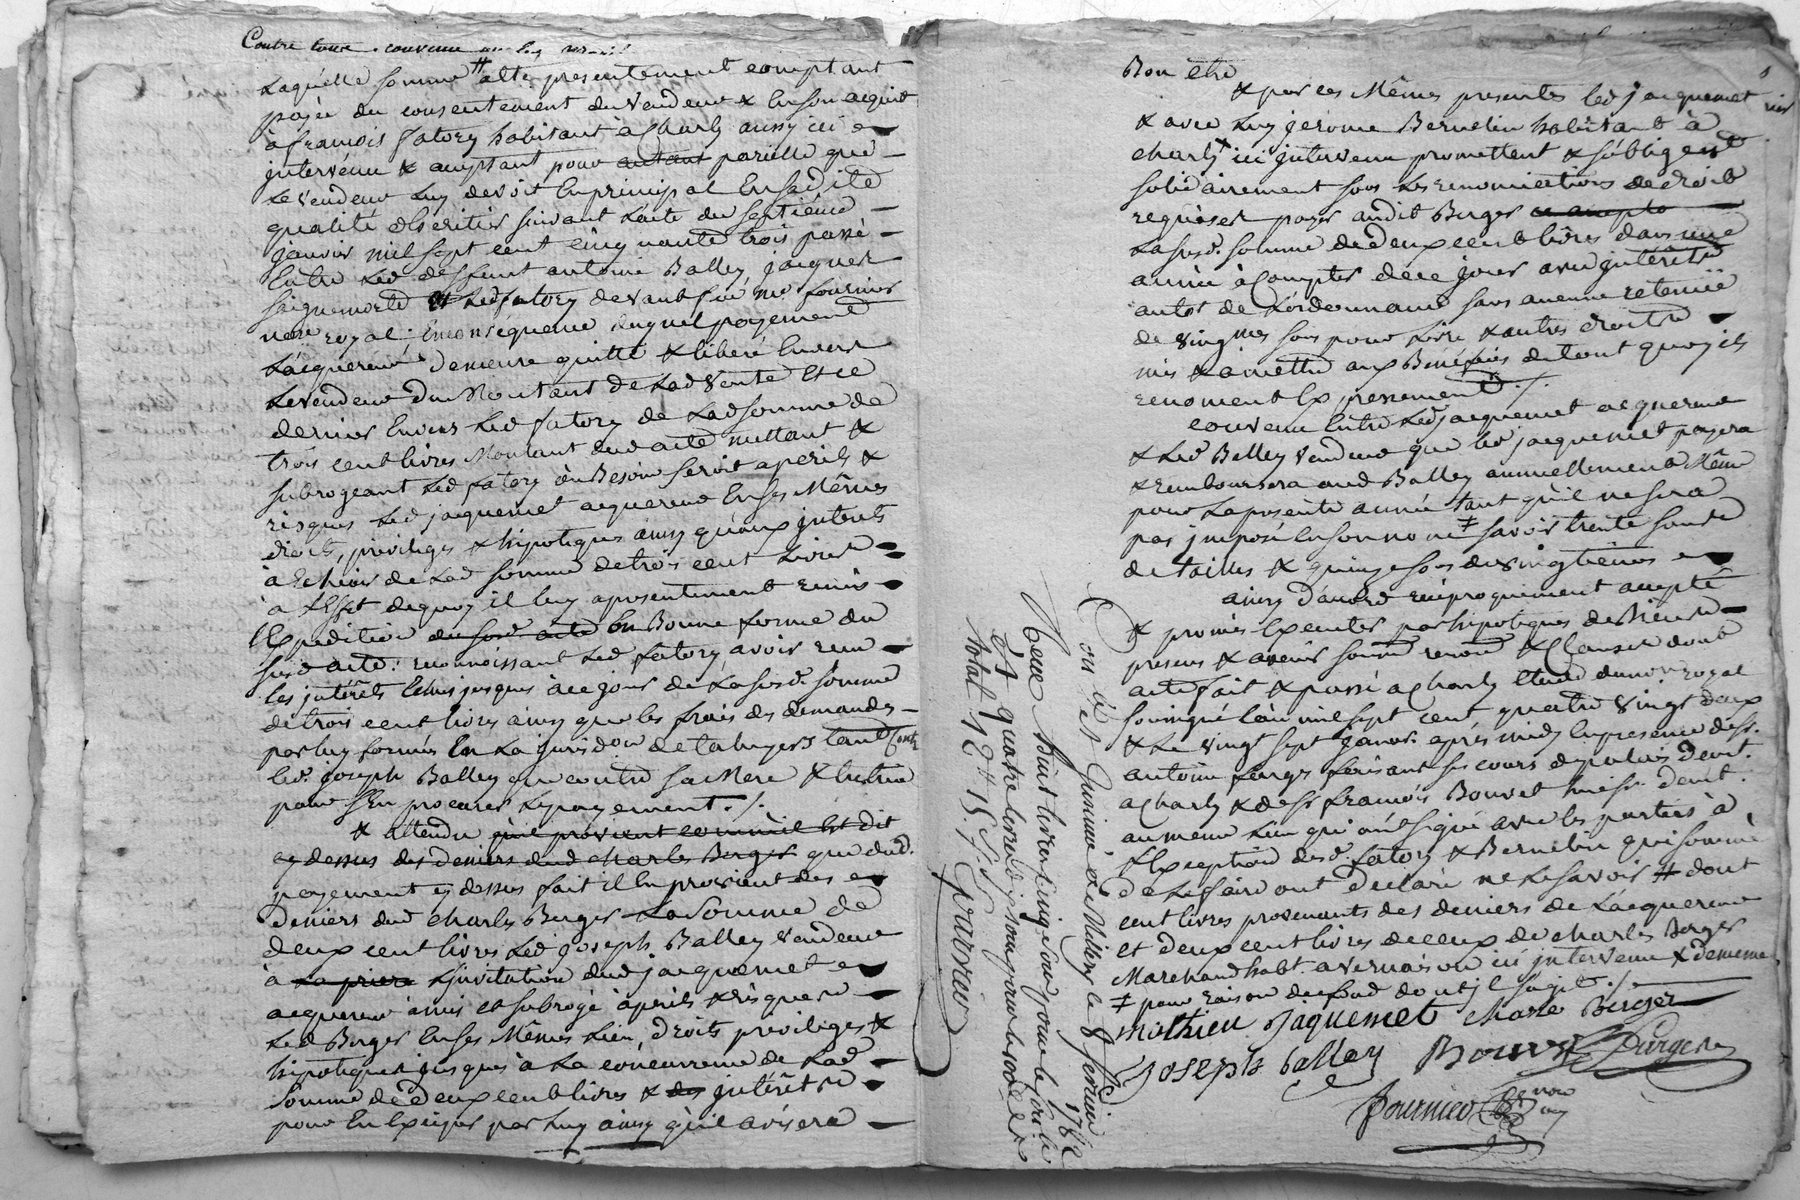 Contre toute
Laquelle somme # a été presentement comptant
payée du consentement du vendeur & En son acquit
à francois fatory habitant à Charly aussy ici
intervenu & acceptant pour autant pareille que
Le vendeur luy devoit En principal En sadite
qualité d'heritier suivant L'acte du septième
janvier mil sept cent cinquante trois passé
Entre led deffunt antoine Balley, jacques
& led fatory devant feu me fournier
nore royal ; En conséquence duquel payement
L'acquereur demeure quitte & libéré Envers
Le vendeur du Montant de Lad vente Et ce
dernier Envers Led fatory de Lad somme de
trois cent livres Montant dud acte mettant &
subrogeant Led fatory au Besoin seroit a perils &
risques Led jacquemet acquereur En ses Mêmes
droits, privileges & hipoteques ainsy qu'aux interets
à Echeoir de Lad somme de trois cent Livres
a l'Effet de quoy il luy a presentement remis
Expedition du susd acte En Bonne forme du
susd acte : reconnoissant Led fatory avoir reçu
les intérêts Echus jusques à ce jour de La susd. somme
de trois cent livres ainsy que les frais des demandes
par luy formés En La jurisdon de tant Contre
led. joseph Balley que contre sa Mere & tutrice
pour s'En procurer Le payement ./.
& attendu qu'il provient comme il Est dit
cy dessus des deniers dud Charles Berger que dud.
payement cy dessus fait il En provient des
Deniers dud Charles Berger La somme de
deux cent livres Led joseph Balley vendeur
à La priere L'invitation dud jacquemet
acquereur a mis et subrogé à perils & risques
Led Berger En ses Mêmes Lieu, droits privileges &
hipoteques jusques à La concurrence de Lad
somme de deux cent livres & des intérêts
pour En Exiger par luy ainsy qu'il avisera
Bon être
& par ces Mêmes presentes led jacquemet
& avec luy jerome Bernelin habitant à
Charly ici intervenu promettent & s'obligent
solidairement sous Les renonciations de droit
requises payer audit Berger ce accepte
La susd. somme de deux cent livres dans une
année à Compter de ce jour avec intérêts
au tos de L'ordonnance sans aucune retenüe
de vingmes sous pour Livre & autres droits
mis & a mettre aux Benéfices de tout quoy ils
renoncent Expressement ./.
convenu Entre Led jacquemet acquereur
& Led Balley vendeur que led jacquemet payera
& remboursera aud Balley annuellement Même
pour La presente année tant qu'il ne sera
pas imposé En son nom ‡ savoir trente sous
de tailles & quinze sous de vingtiemes
ainsy d'accord reciproquement accepté
& promis Executer par hipoteques de Biens
presens & avenir soumn renonn & Clauses dont
acte fait & passé a Charly Etude du nore royal
soussigné L'an mil sept cent quatre vingt deux
& Le vingt sept janvr. après midy En presence de sr.
antoine farges faisant ses cours de palais demt.
a Charly & de sr francois Bouvet huissr demt.
au meme Lieu qui ont signé avec les parties à
L'Exception desd. fatory & Bernelin qui sommé
de Le faire ont declaré ne Le savoir # dont
cent livres provenants des deniers de L'acquereur
et deux cent livres de ceux de Charles Berger
Marchand habt. a vernaison ici intervenu & de meme
‡ pour raison du fond dont il s'agit ./.
mathieu Jaquemet Charle Berger
Joseph balley Bouvet farges
fournier nore
Con lé et Gonivié à St Millery le 8 fevrier 1782
Reçu huit livres cinq sous pour le cont.le
Et quatre livres dix sous pour le
total 12 # 15 s.